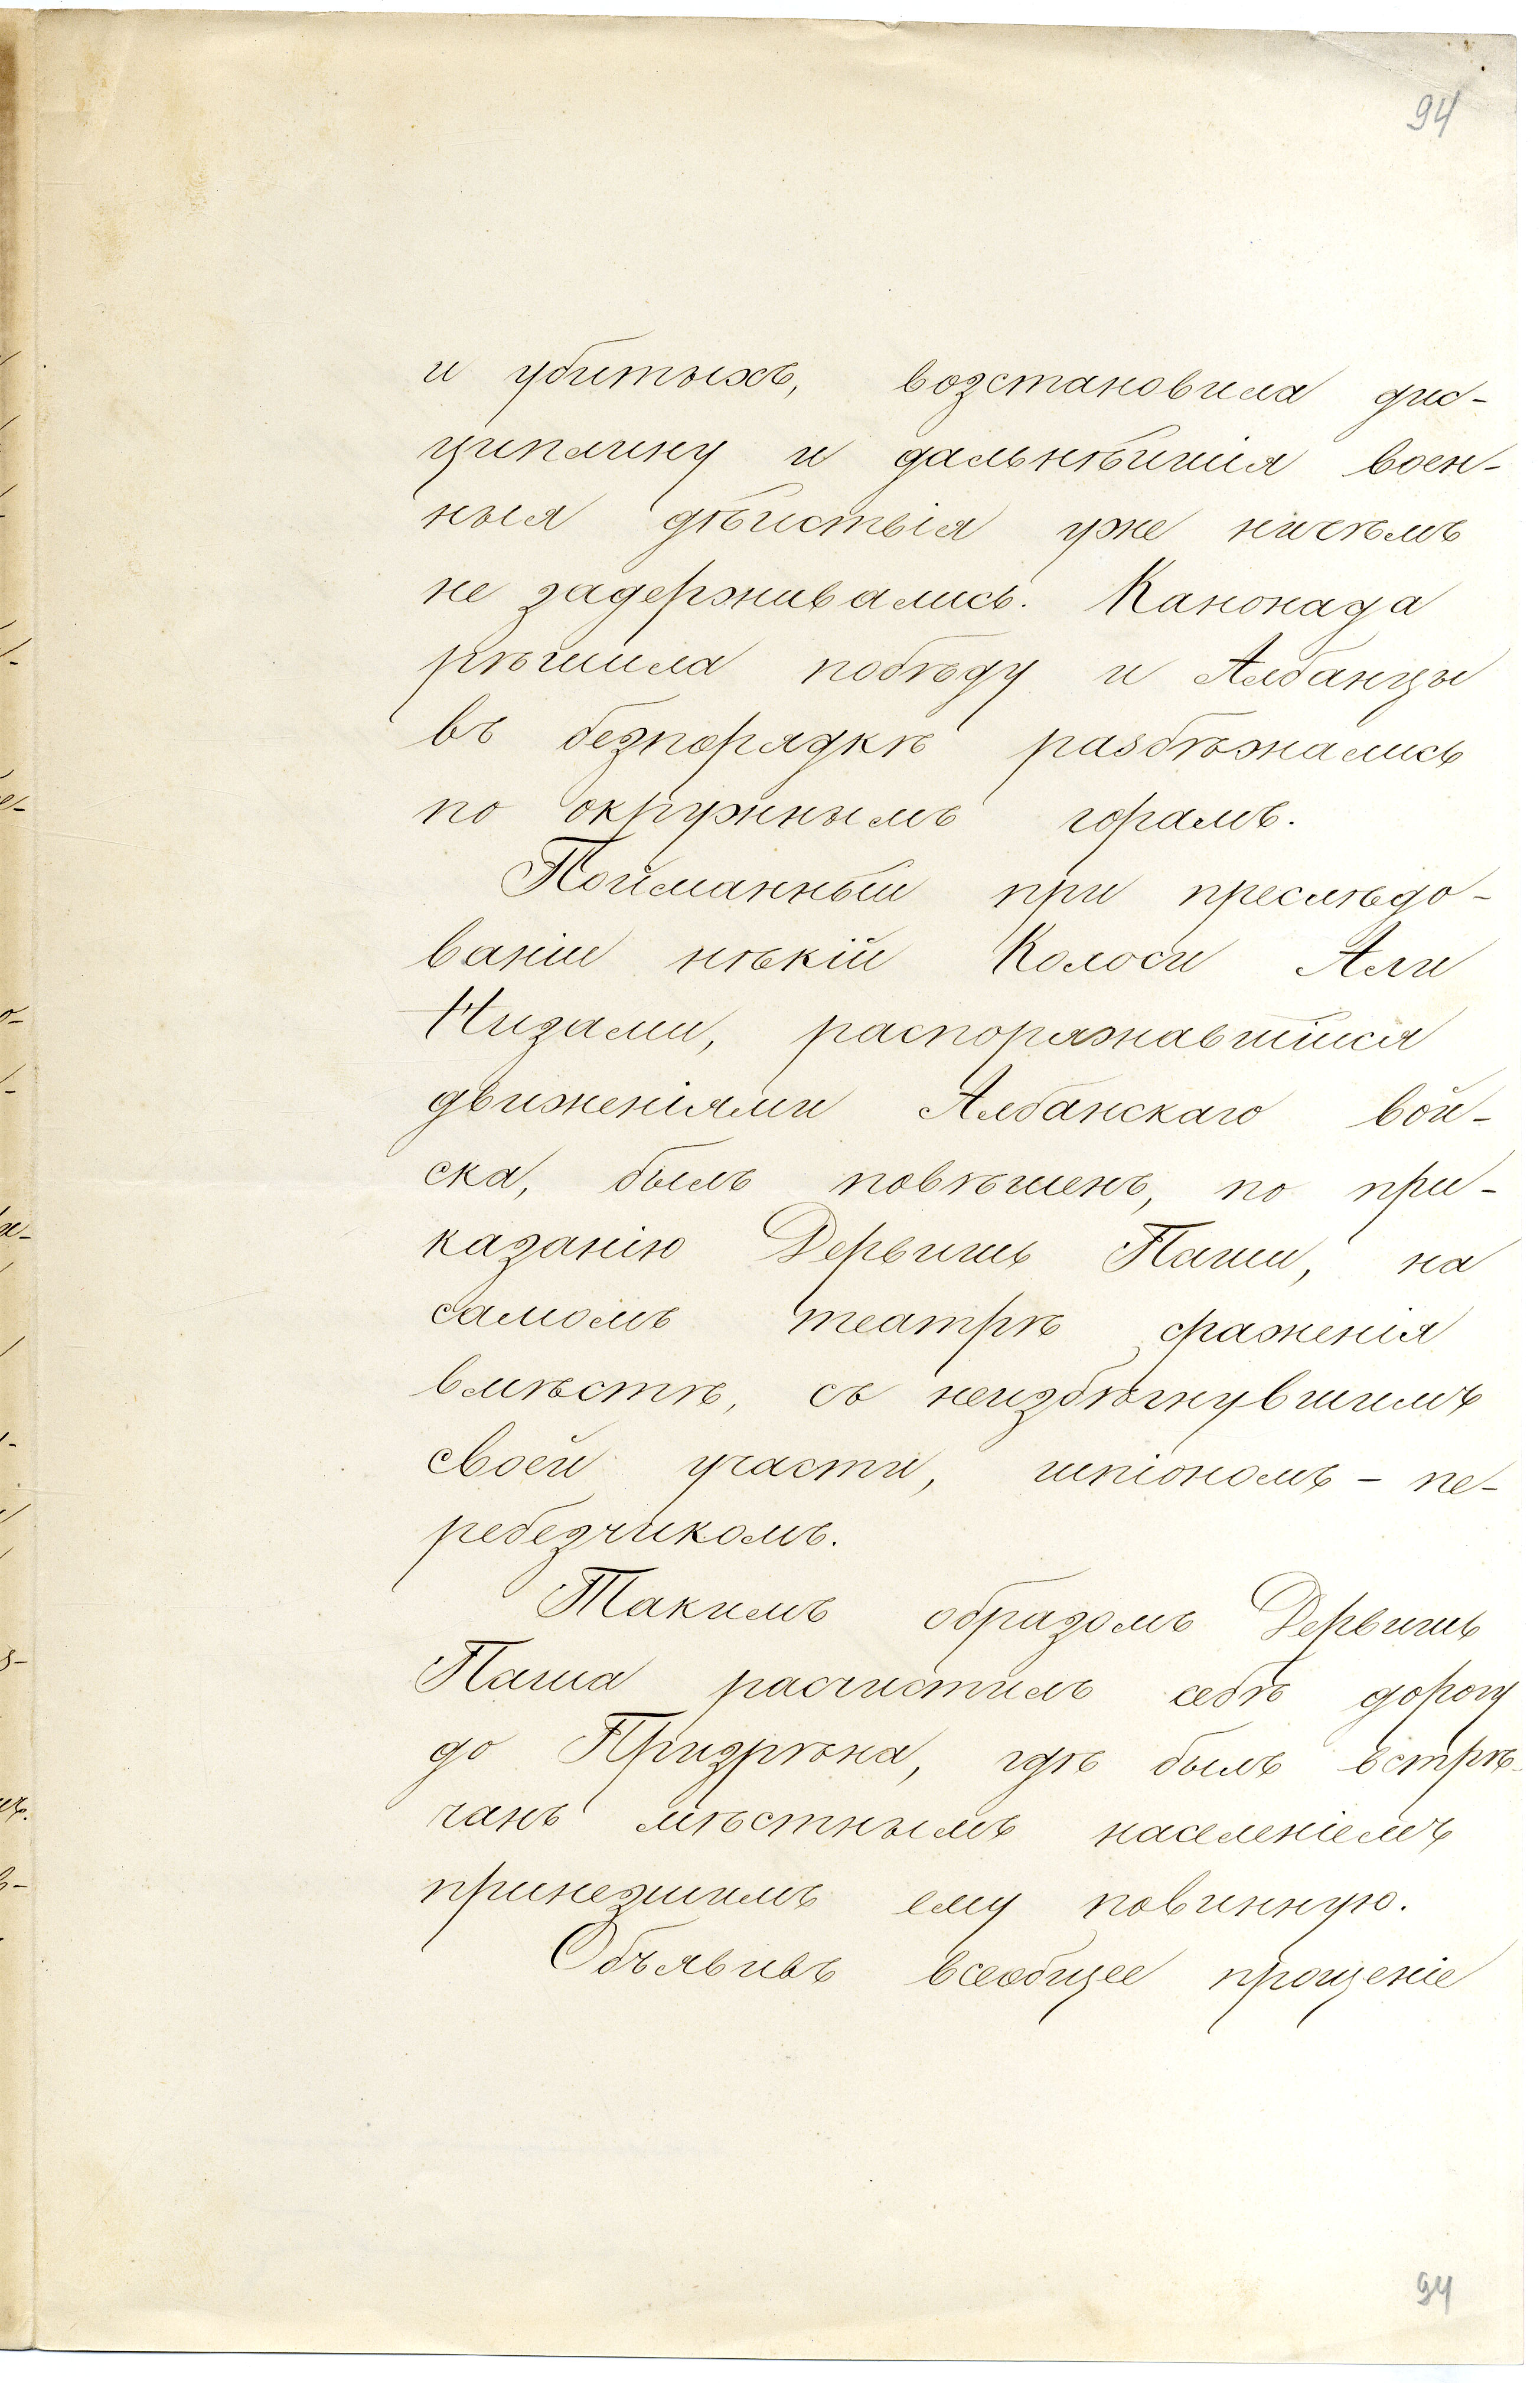 94
и убитыхъ, возстановила дис-
циплину и дальнѣйшія воен-
ныя дѣйствія уже ничѣмъ
не задерживались. Канонада
рѣшила побѣду и Албанцы
въ безпорядкѣ разбѣжались
по окружнымъ горамъ.
Пойманный при преслѣдо-
ваніи нѣкій Колоси Али
Низами, распоряжавшійся
движеніями Албанскаго вой-
ска, былъ повѣшенъ, по при-
казанію Дервишъ Паши, на
самомъ театрѣ сраженія
вмѣстѣ, съ неизбѣгнувшимъ
своей участи, шпіономъ - пе-
ребезчикомъ.
Такимъ образомъ Дервишъ
Паша расчистилъ себѣ дорогу
до Призрѣна, гдѣ былъ встрѣ-
чанъ мѣстнымъ населеніемъ
принезшимъ ему повинную.
Объявивъ всеобщее прощеніе
94